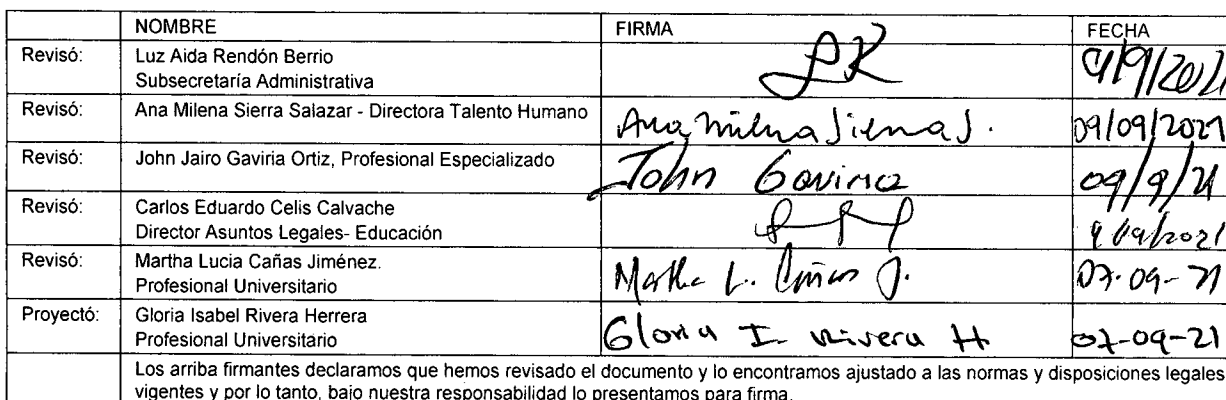 NOMBRE FIRMA FECHA
Revisó: Luz Aida Rendón Berrio
Subsecretaría Administrativa 9/9/2021
Revisó: Ana Milena Sierra Salazar - Directora Talento Humano Ana Milena Sierra S. 09/09/2021
Revisó: John Jairo Gaviria Ortiz, Profesional Especializado John Gaviria 09/9/21
Revisó: Carlos Eduardo Celis Calvache
Director Asuntos Legales- Educación 9/09/2021
Revisó: Martha Lucia Cañas Jiménez.
Profesional Universitario Martha L. Cañas J. 07-09-21
Proyectó: Gloria Isabel Rivera Herrera
Profesional Universitario Gloria I. Rivera H. 07-09-21
Los arriba firmantes declaramos que hemos revisado el documento y lo encontramos ajustado a las normas y disposiciones legales
vigentes y por lo tanto, bajo nuestra responsabilidad lo presentamos para firma.